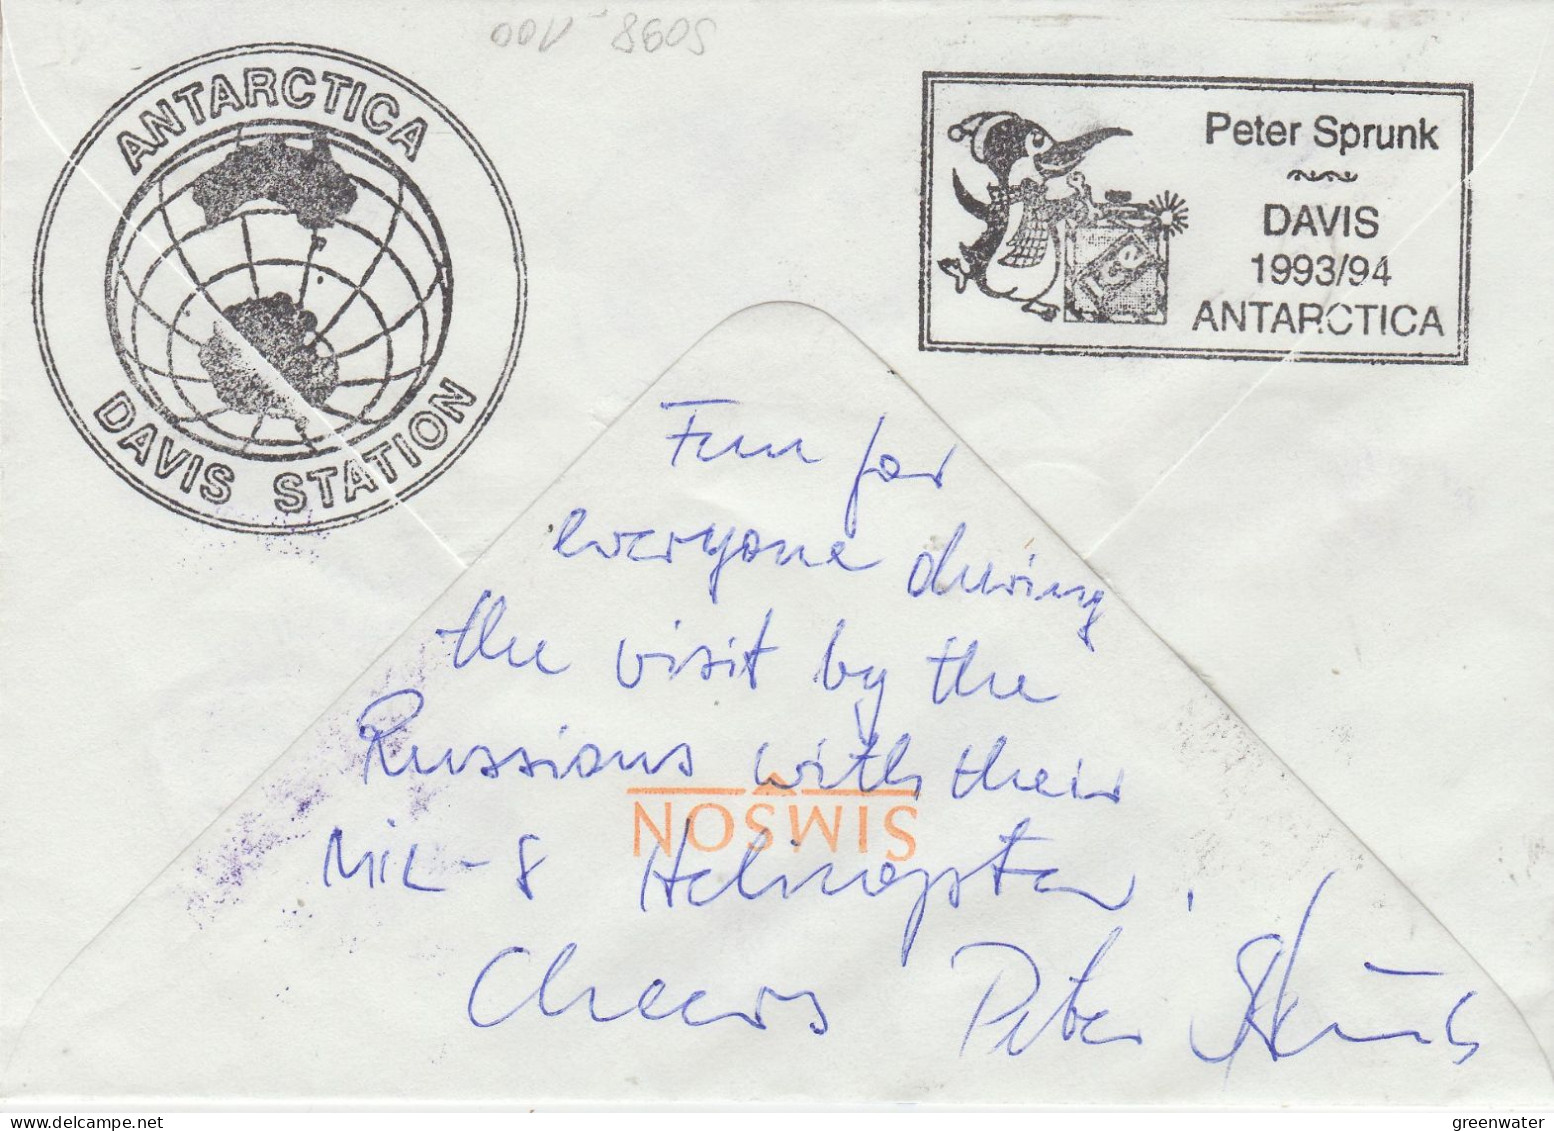 5098-100
ANTARCTICA
DAVIS STATION
Peter Sprunk
DAVIS
1993/94
ANTARCTICA
ICE
Fun for
everyone during
the visit by the
Russians with their
MIL-8 Helicopter.
Cheers Peter Sprunk
SIMSON
greenwater